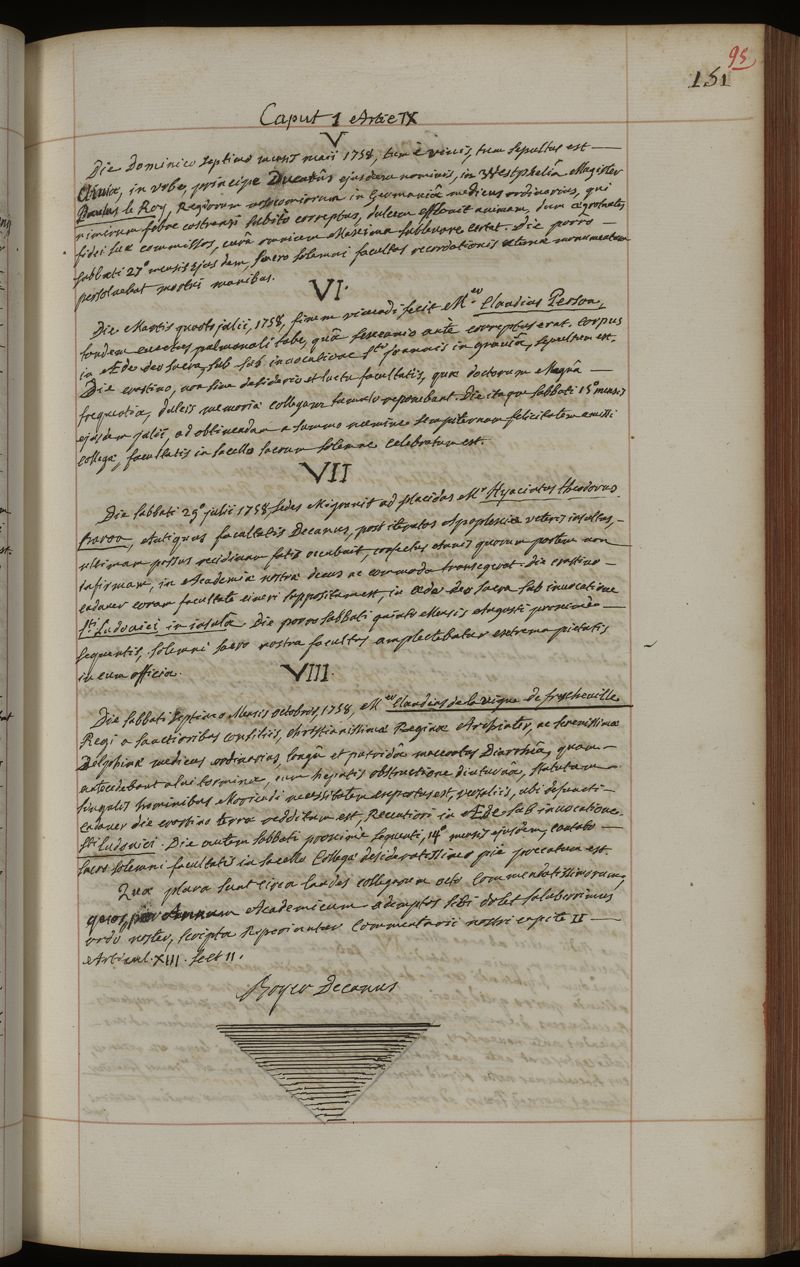 95
151
Caput 1 Artic IX
V
Die Dominico septimo mensis maii 1758, tum è vivis, tum sepultus est —
Cliviæ, in urbe, principe Ducatûs ejusdem nominis, in Westpheliâ Magister
Paulus le Roy, Regiorum nosocomiorum in Germaniâ medicus ordinarius, qui
nimirum febre castrensi subitò correptus, dulcem efflavit animam, dum ægrotantes
fidei suæ commissos, curâ omnium Maximâ sublevare certat. Die porrò —
sabbati 27º mensis ejusdem, sacro solemni facultas recordationis æternæ monumentum
persolvebat nostri manibus.
VI.
Die Martis quarto julii, 1758, finem vivendi fecit M.er Claudius Person,
tandem enectus pulmonali tabe, quâ sesquianno antè correptus erat. Corpus
in Æde deo sacra, sub invocatione Sti Joannis in graviâ, sepultum est.
Die crastino, non sine desiderio et luctu facultatis, quæ doctorum Magnâ —
frequentiâ, dulcis memoriæ collegam tumulo reponebant. Die itaque sabbati 15º mensis
ejusdem julii, ad obtinendam a summo numine sempiternam felicitatem amissi
collegæ, facultatis in sacello sacrum solemne celebratum est.
VII
Die sabbati 29º julii 1758, sedes Migravit ad placidas Mr Hyacintus theodorus
Baron, Antiquus facultatis Decanus, post iteratos Apoplexiæ veteris insultus, —
ultimam passus recidivam fatis occubuit, confectus annis quorum partem non
infirmam, in Academiæ nostræ decus ac commoda transegerat. Die crastino —
cadaver coram facultate cineri suppositum est, in æde deo sacra sub invocatione
Sti Ludovici in insulâ. Die porro sabbati quinto Mensis Augusti proximè —
sequentis, solemni sacro nostra facultas amplectebatur extrema pietatis
in eum officia.
VIII.
Die sabbati septimo Mensis octobris, 1758, Mer Claudius de la vigne de frecheville
Regi a sanctioribus consiliis, christianissimæ Reginæ Archiater, ac serenissimæ
Delphinæ medicus ordinarius, longâ et putridâ maceratus Diarrhæâ, quam —
antecedebant alvi tormina, cum hepatis obstructione diuturnâ, statutam —
singulis hominibus Moriendi necessitatem expertus est, versaliis, ubi defuncti —
cadaver die crastino terræ redditum est, Recentiori in Æde sub invocatione
Sti Ludovici. Die autem sabbati proximè sequenti, 14º mensis ejusdem, cantato —
sacro solemni facultatis in sacello Collegæ desideratissimo piè precatum est.
Quæ plura sunt circa laudes collegarum octo Commendatissimorum,
quos per Annum Academicum ademptos sibi dolet saluberrimus
ordo noster, scripta Reperiantur Commentarii nostri capite II —
Articul. XIII. sect II.
Boyer Decanus